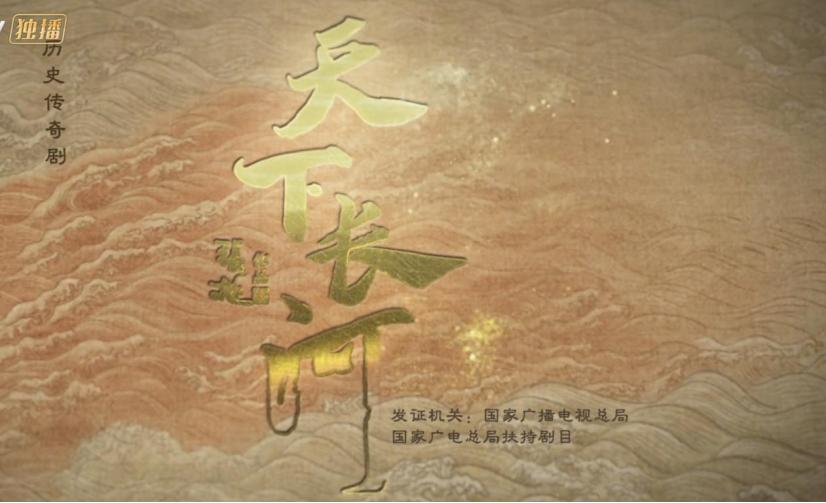 独播
历史传奇剧
天下长河
发证机关：国家广播电视总局
国家广电总局扶持剧目